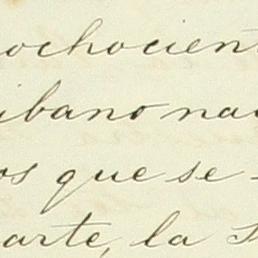 ochocient
ibano na
os que se
arte, la